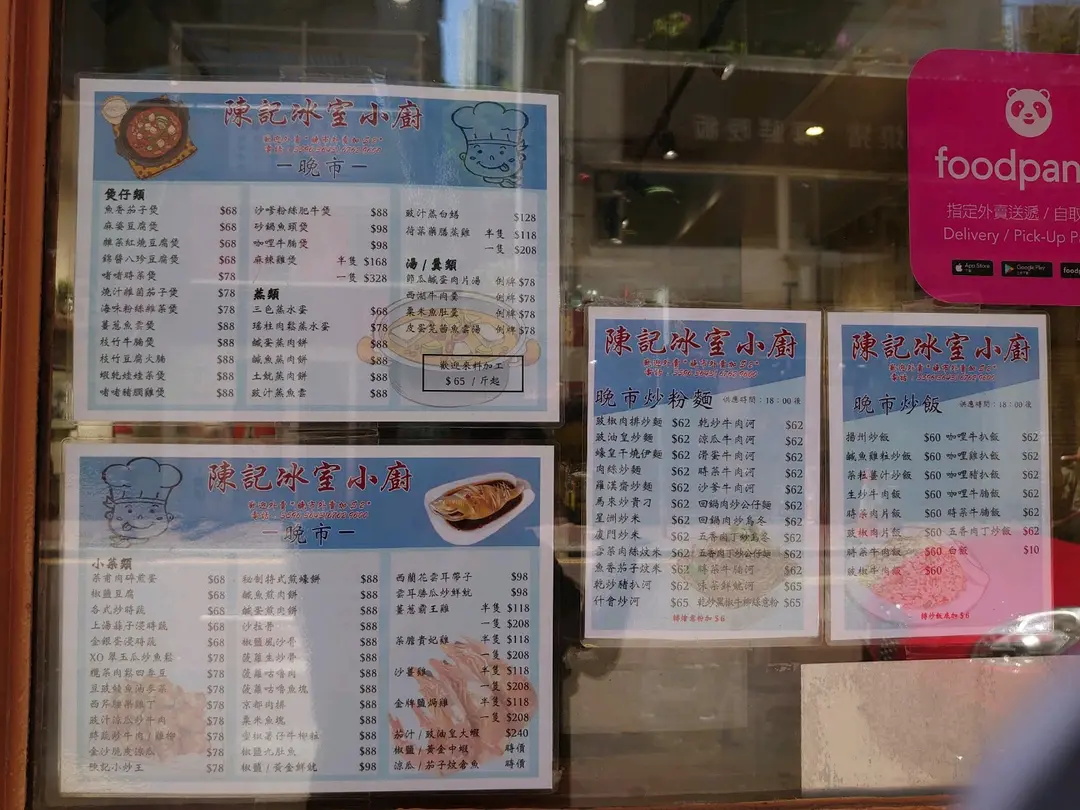 陳記冰室小廚
一晚市一
煲仔類
魚香茄子煲 $68
麻婆豆腐煲 $68
雜菜紅燒豆腐煲 $68
錦醬八珍豆腐煲 $68
啫啫時菜煲 $78
燒汁雜菌茄子煲 $78
海味粉絲雜菜煲 $78
薑蔥魚雲煲 $88
枝竹牛腩煲 $88
枝竹豆腐火腩 $88
蝦乾娃娃菜煲 $88
啫啫豬膶雞煲 $88
沙嗲粉絲肥牛煲 $88
砂鍋魚頭煲 $98
咖喱牛腩煲 $98
麻辣雞煲 半隻 $168
一隻 $328
蒸類
三色蒸水蛋 $68
瑤柱肉鬆蒸水蛋 $78
鹹蛋蒸肉餅 $88
鹹魚蒸肉餅 $88
土魷蒸肉餅 $88
豉汁蒸魚雲 $88
豉汁蒸白鱔 $128
荷葉藥膳蒸雞 半隻 $118
一隻 $208
湯/羹類
節瓜鹹蛋肉片湯 例牌 $78
西湖牛肉羹 例牌 $78
粟米魚肚羹 例牌 $78
皮蛋芫茜魚雲湯 例牌 $78
歡迎來料加工
$65 / 斤起
陳記冰室小廚
一晚市一
小菜類
菜甫肉碎煎蛋 $68
椒鹽豆腐 $68
各式炒時蔬 $68
上湯茄子浸時蔬 $68
金銀蛋浸時蔬 $68
XO 翠玉瓜炒魚鬆 $78
欖菜肉鬆四季豆 $78
豆豉鯪魚油麥菜 $78
西芹腰果雞丁 $78
豉汁涼瓜炒牛肉 $78
時蔬炒牛肉/雞柳 $78
金沙脆爽涼瓜 $78
陳記小炒王 $78
秘制特式煎蠔餅 $88
鹹魚煎肉餅 $88
鹹蛋煎肉餅 $88
沙拉骨 $88
椒鹽風沙骨 $88
菠蘿生炒骨 $88
菠蘿咕嚕肉 $88
菠蘿咕嚕魚塊 $88
京都肉排 $88
粟米魚塊 $88
蜜椒薯仔牛柳粒 $88
椒鹽九肚魚 $88
椒鹽/黃金鮮魷 $98
西蘭花雲耳帶子 $98
雲耳勝瓜炒鮮魷 $98
薑蔥霸王雞 半隻 $118
一隻 $208
菜膽貴妃雞 半隻 $118
一隻 $208
沙薑雞 半隻 $118
一隻 $208
金牌鹽焗雞 半隻 $118
一隻 $208
茄汁/豉油皇大蝦 $240
椒鹽/黃金中蝦 時價
涼瓜/茄子炆倉魚 時價
陳記冰室小廚
晚市炒粉麵 供應時間：18：00後
豉椒肉排炒麵 $62
豉油皇炒麵 $62
蠔皇干燒伊麵 $62
肉絲炒麵 $62
羅漢齋炒麵 $62
馬來炒貴刁 $62
星洲炒米 $62
廈門炒米 $62
雪菜肉絲炆米 $62
魚香茄子炆米 $62
乾炒豬扒河 $62
什會炒河 $65
乾炒牛肉河 $62
涼瓜牛肉河 $62
滑蛋牛肉河 $62
時菜牛肉河 $62
沙爹牛肉河 $62
回鍋肉炒公仔麵 $62
回鍋肉炒烏冬 $62
五香肉丁炒烏冬 $62
五香肉丁炒公仔麵 $62
時菜牛柳河 $62
味菜鮮魷河 $65
乾炒黑椒牛柳絲意粉 $65
陳記冰室小廚
晚市炒飯 供應時間：18：00後
揚州炒飯 $60
鹹魚雞粒炒飯 $60
菜粒薑汁炒飯 $60
生炒牛肉飯 $60
時菜肉片飯 $60
豉椒肉片飯 $60
時菜牛肉飯 $60
豉椒牛肉飯 $60
咖喱牛扒飯 $62
咖喱雞扒飯 $62
咖喱豬扒飯 $62
咖喱牛腩飯 $62
時菜牛腩飯 $62
五香肉丁炒飯 $62
白飯 $10
轉炒飯底加$6
foodpan
指定外賣送遞 / 自取
Delivery / Pick-Up
App Store
Google Play